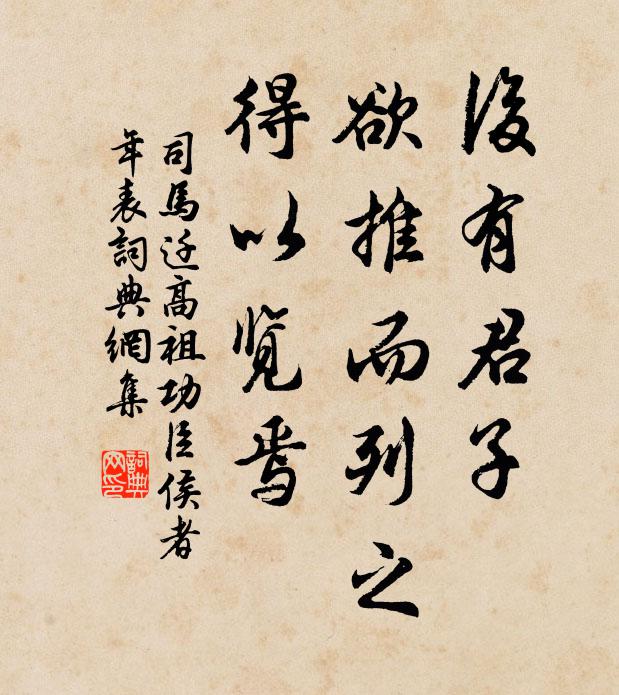 後有君子
欲推而列之
得以覽焉
司馬遷高祖功臣侯者
年表詞典網集
詞典
网印